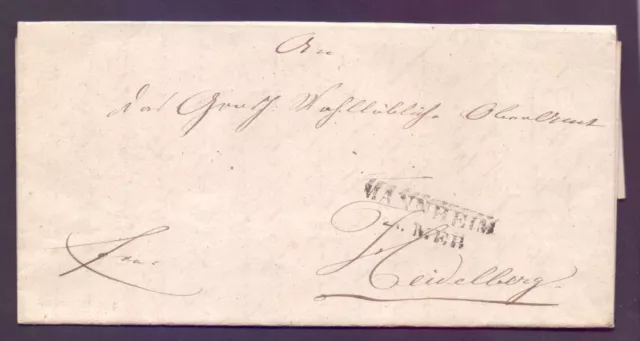 An
das Großh. Wohllöbliche Oberamt
MANNHEIM
Heidelberg.